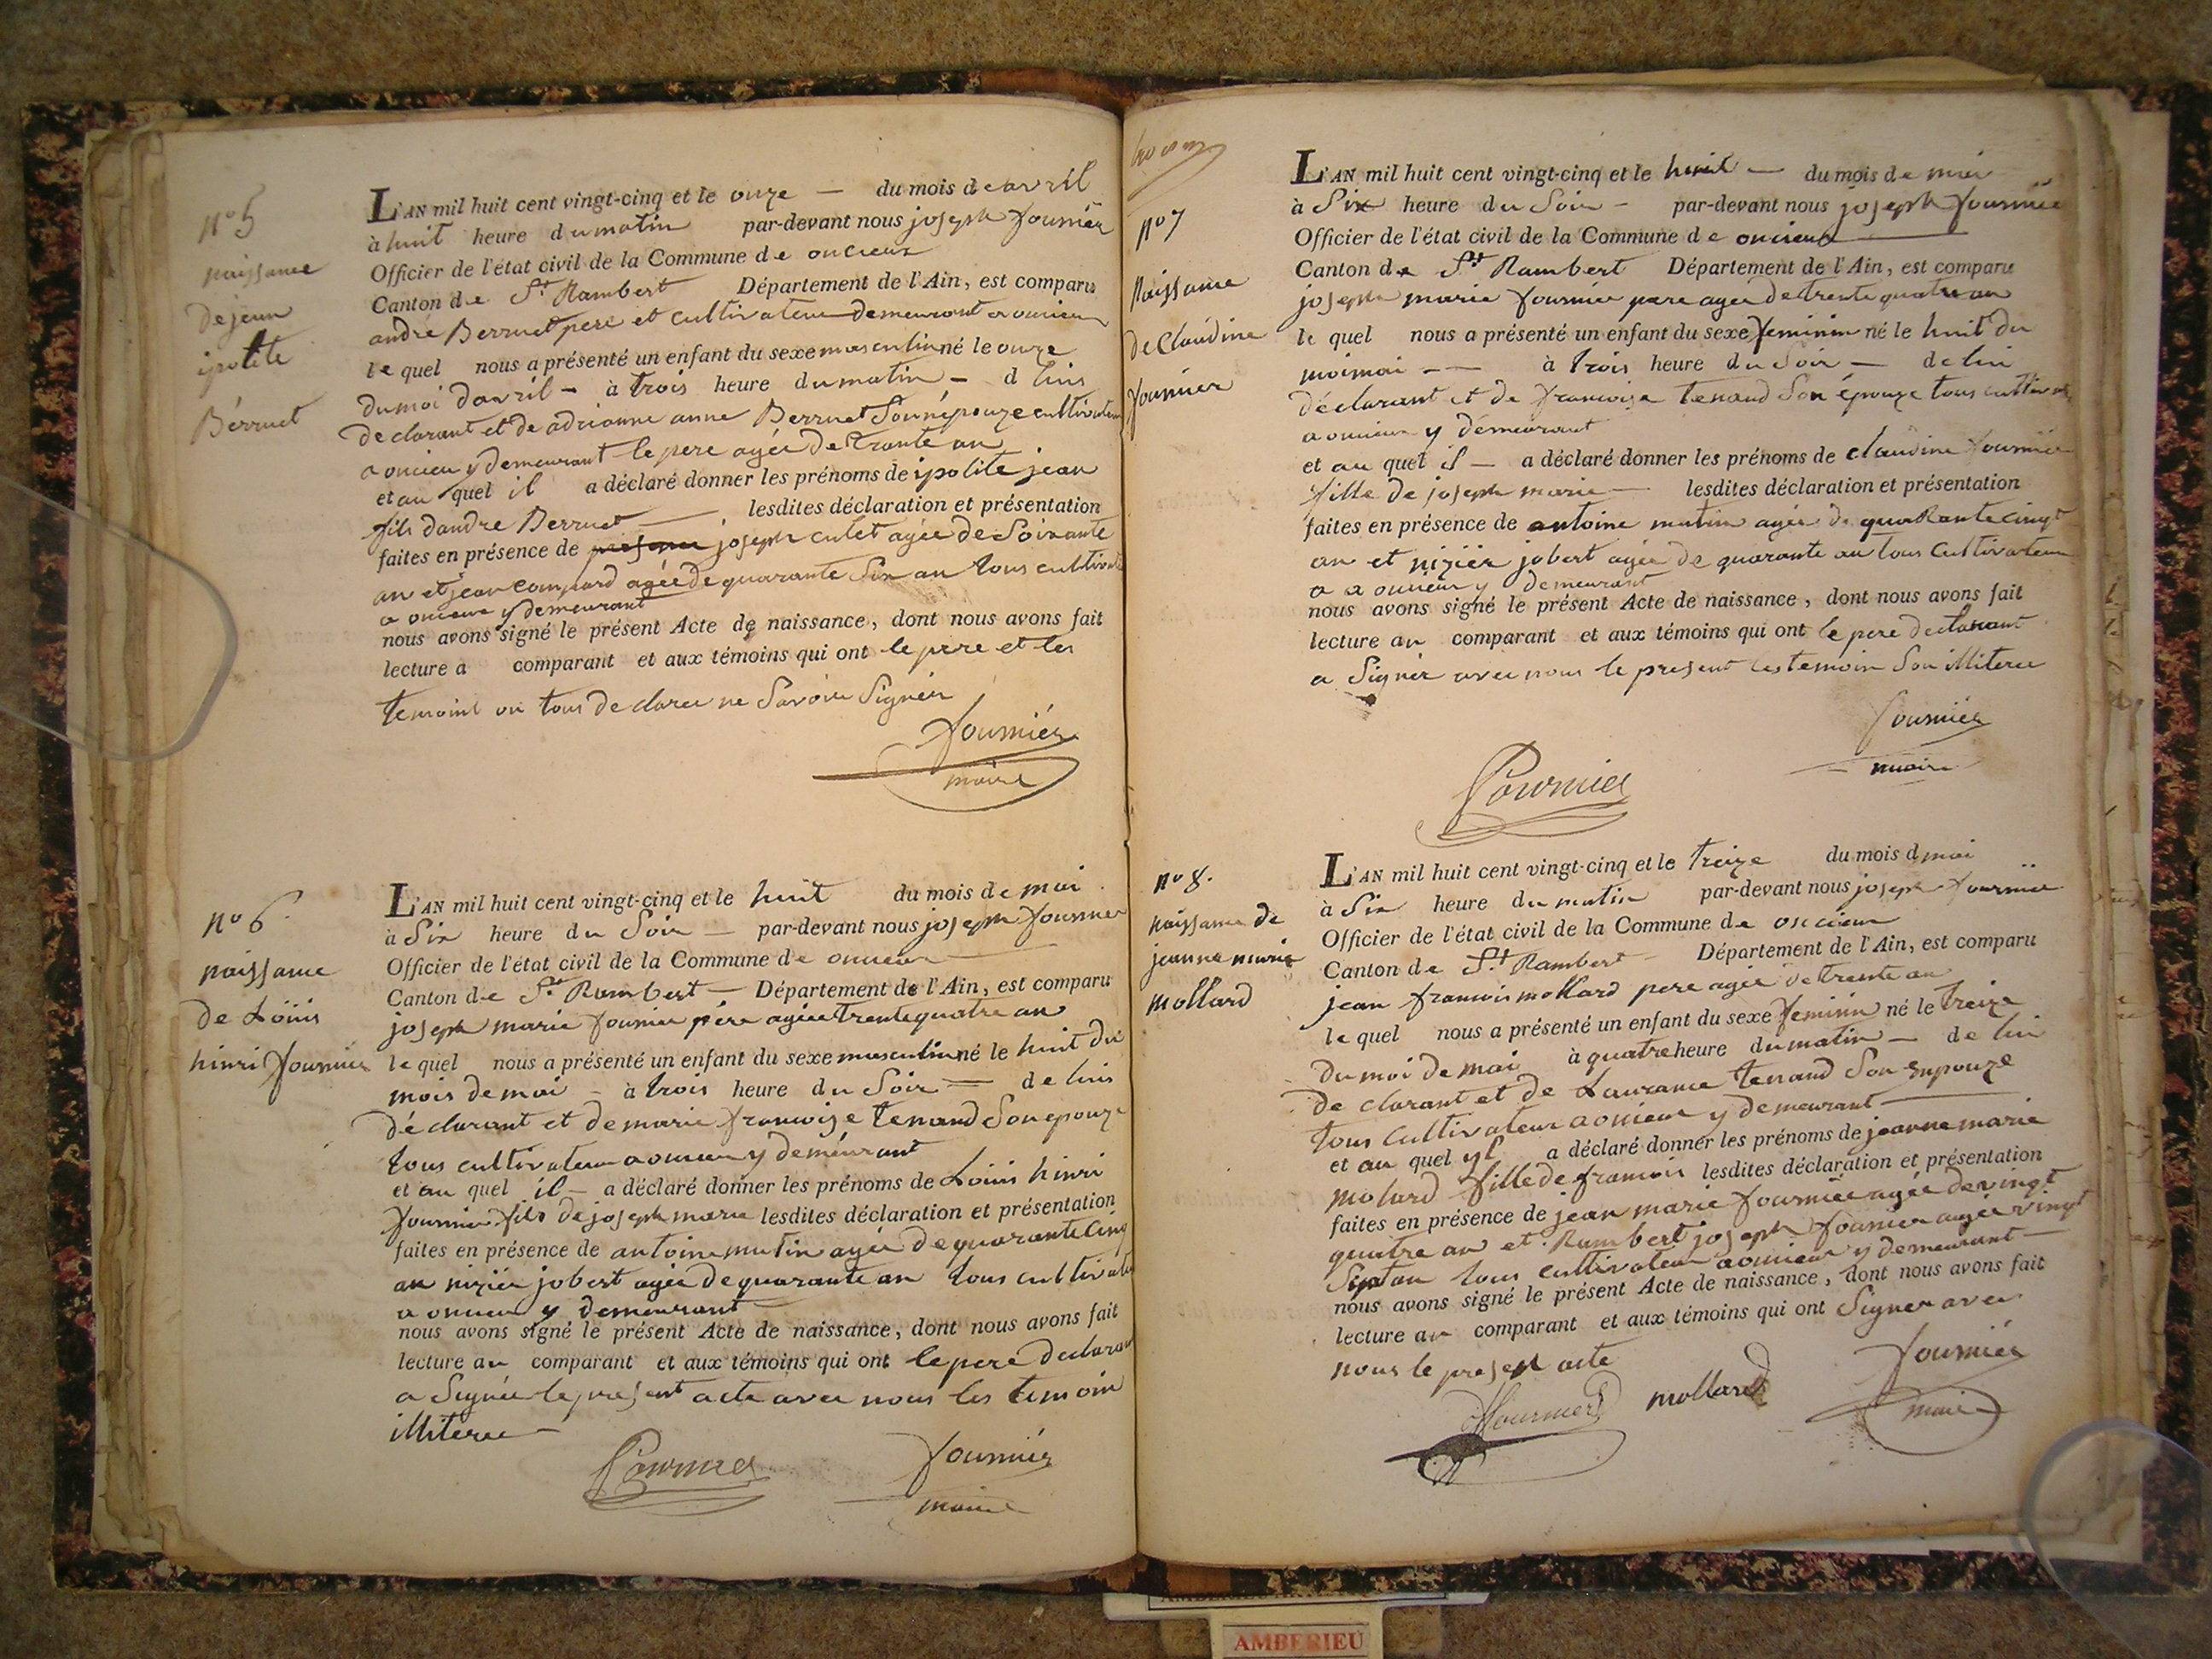 n° 5
naissance
de jean
ipolite
Bérruet
L'AN mil huit cent vingt-cinq et le onze — du mois de avril
à huit heure du matin par-devant nous joseph fournier
Officier de l'état civil de la Commune de oncieux
Canton de St Rambert Département de l'Ain, est comparu
andré Berruet pere et cultivateur demeurant a oncieux
le quel nous a présenté un enfant du sexe masculin né le onze
du moi davril — à trois heure du matin — d luis
declarant et de adrianne anne Berruet Son népouze cultivateur
a oncieu y demeurant le pere agée de trante an
et au quel il a déclaré donner les prénoms de ipolite jean
fils dandre Berruet — lesdites déclaration et présentation
faites en présence de joseph culet agée de Soixante
an et jean compard agée de quarante Six an tous cultivate
a oncieux y demeurant
nous avons signé le présent Acte de naissance, dont nous avons fait
lecture a comparant et aux témoins qui ont le pere et les
temoint on tous declarée ne Savoire Signér
fourniér
maire
n° 6
naissance
de Löuis
hinri fournier
L'AN mil huit cent vingt-cinq et le huit du mois de mai
à Six heure du Soir — par-devant nous joseph fournier
Officier de l'état civil de la Commune de oncieux
Canton de St Rambert — Département de l'Ain, est comparu
joseph marie fournier père agée trente quatre an
le quel nous a présenté un enfant du sexe masculin né le huit du
mois de mai — à trois heure du Soir — de luis
déclarant et de marie francoise tenand Son epouze
tous cultivateur a oncieu y deméurant
et au quel il — a déclaré donner les prénoms de Löuis hinri
fournier fils de joseph marie lesdites déclaration et présentation
faites en présence de antoine mutin agée de quarante cinq
an niziér jobert agée de quarante an tous cultivate
a oncieu y demeurant
nous avons signé le présent Acte de naissance, dont nous avons fait
lecture au comparant et aux témoins qui ont le pere declaran
a Signée le present acte avec nous les temoin
illiteree —
fournier
fourniér
maire
n° 7
Naissance
de Claudine
fournier
L'AN mil huit cent vingt-cinq et le huit — du mois de mai
à Six heure du Soir — par-devant nous joseph fournier
Officier de l'état civil de la Commune de oncieux
Canton de St Rambert Département de l'Ain, est comparu
joseph marie fournier pere agée de trente quatre an
le quel nous a présenté un enfant du sexe feminin né le huit du
moi mai — à trois heure du Soir — de lui
déclarant et de francoise tenand Son épouze tous cultivate
a oncieu y démeurant
et au quel il — a déclaré donner les prénoms de claudine fournier
fille de joseph marie — lesdites déclaration et présentation
faites en présence de antoine mutin agée de quaRante cinqt
an et niziér jobert agée de quarante an tous Cultivateur
a a oncieu y demeurant
nous avons signé le présent Acte de naissance, dont nous avons fait
lecture au comparant et aux témoins qui ont le pere declarant
a Signér avec nous le present les temoin Son illiteree
fourniér
maire
fournier
n° 8.
naissance de
jeanne marie
mollard
L'AN mil huit cent vingt-cinq et le treize du mois d mai
à Six heure du matin par-devant nous joseph fournier
Officier de l'état civil de la Commune de oncieux
Canton de St Rambert — Département de l'Ain, est comparu
jean francois mollard pere agée de trente an
le quel nous a présenté un enfant du sexe feminin né le treize
du moi de mai à quatre heure du matin — de lui
de clarant et de Laurance tenand Son enpouze
tous cultivateur a oncieu y demeurant
et au quel yl a déclaré donner les prénoms de jeanne marie
molard fille de francois lesdites déclaration et présentation
faites en présence de jean marie fourniée agée de vingt
quatre an et Rambert joseph fournier agée vingt
Sept an tous cultivateur a oncieu y demeurant —
nous avons signé le présent Acte de naissance, dont nous avons fait
lecture au comparant et aux témoins qui ont Signer avec
nous le present acte
fournier
mollard
fourniér
maire
AMBERIEU